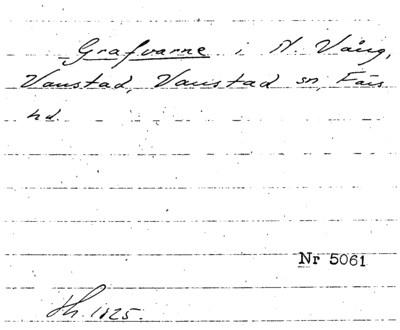 Grafvarne i N. Vång,
Vanstad, Vanstad sn, Färs
hd.
Nr 5061
Hh. 1825.